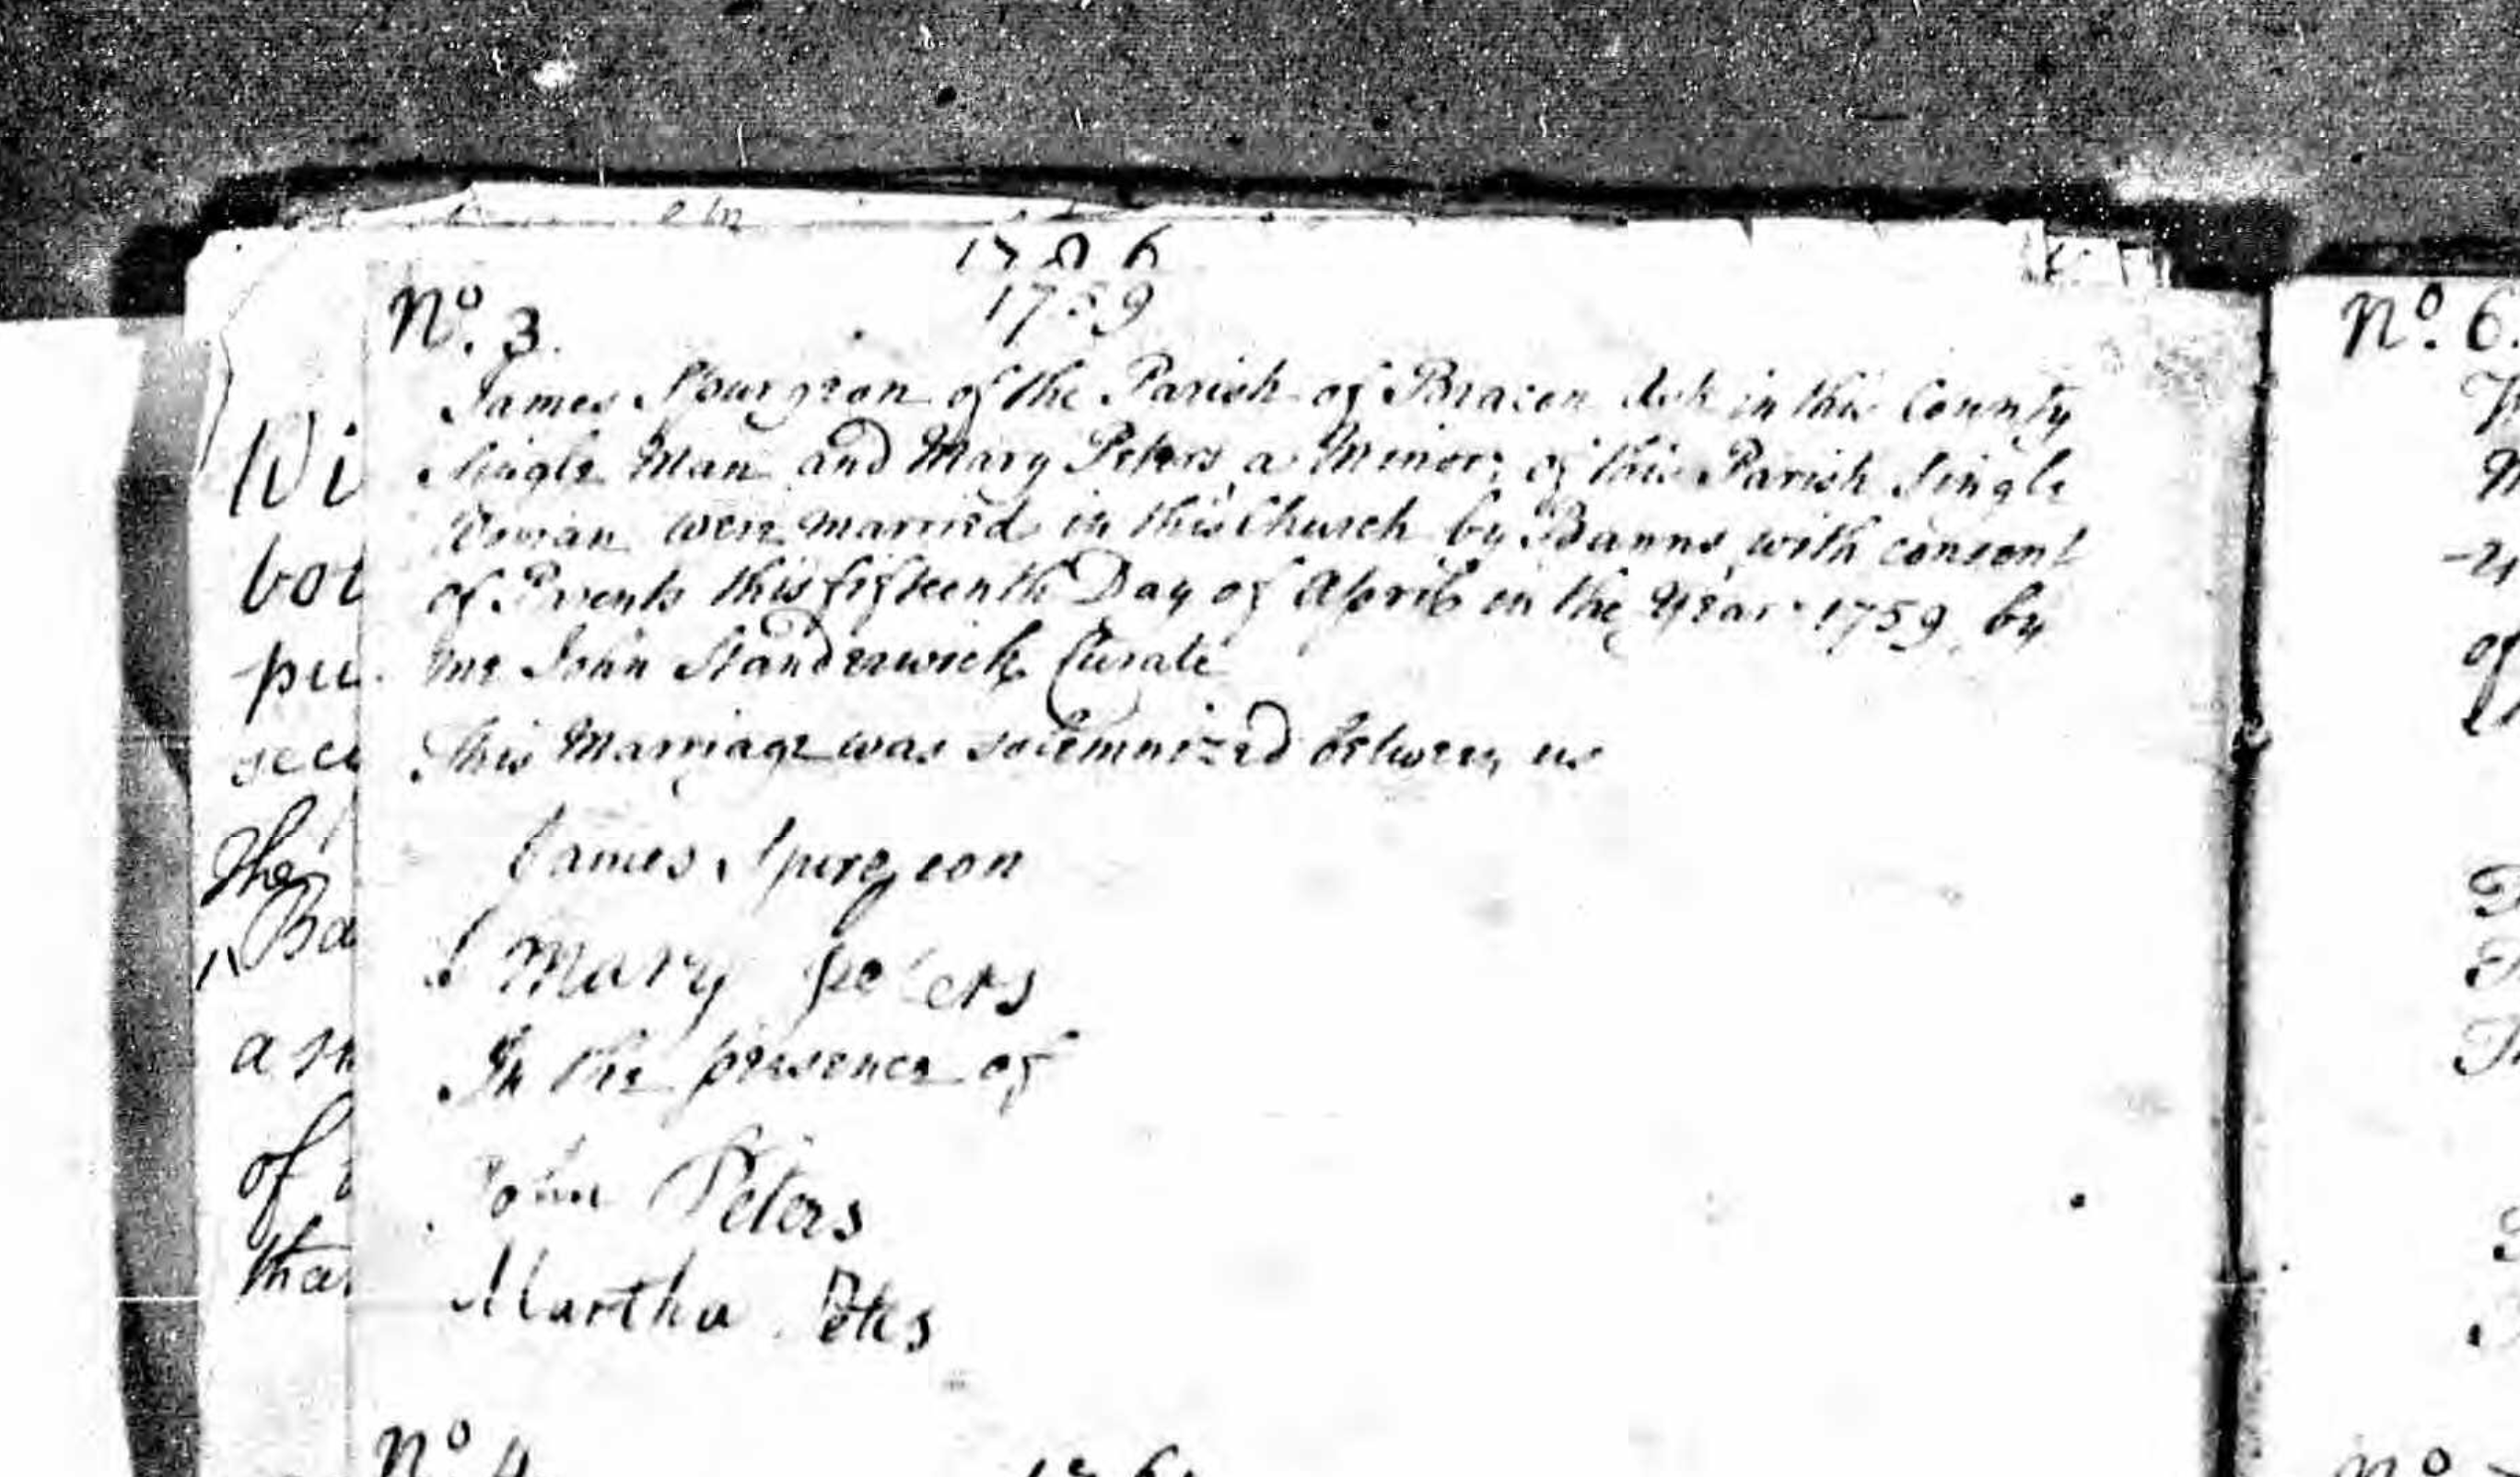 1786
1759
No. 3.
James Spurgeon of the Parish of Bracon Ash in this County
Single Man and Mary Peters a Minor, of this Parish Single
Woman were married in this Church by Banns with consent
of Parents this fifteenth Day of April in the Year 1759, by
me John Standerwick Curate
This Marriage was solemnized between us
James Spurgeon
Mary peters
In the presence of
John Peters
Martha
No 4
No. 6.
Wi
bot
pu
secu
The
Ba
a
of
that
of
No